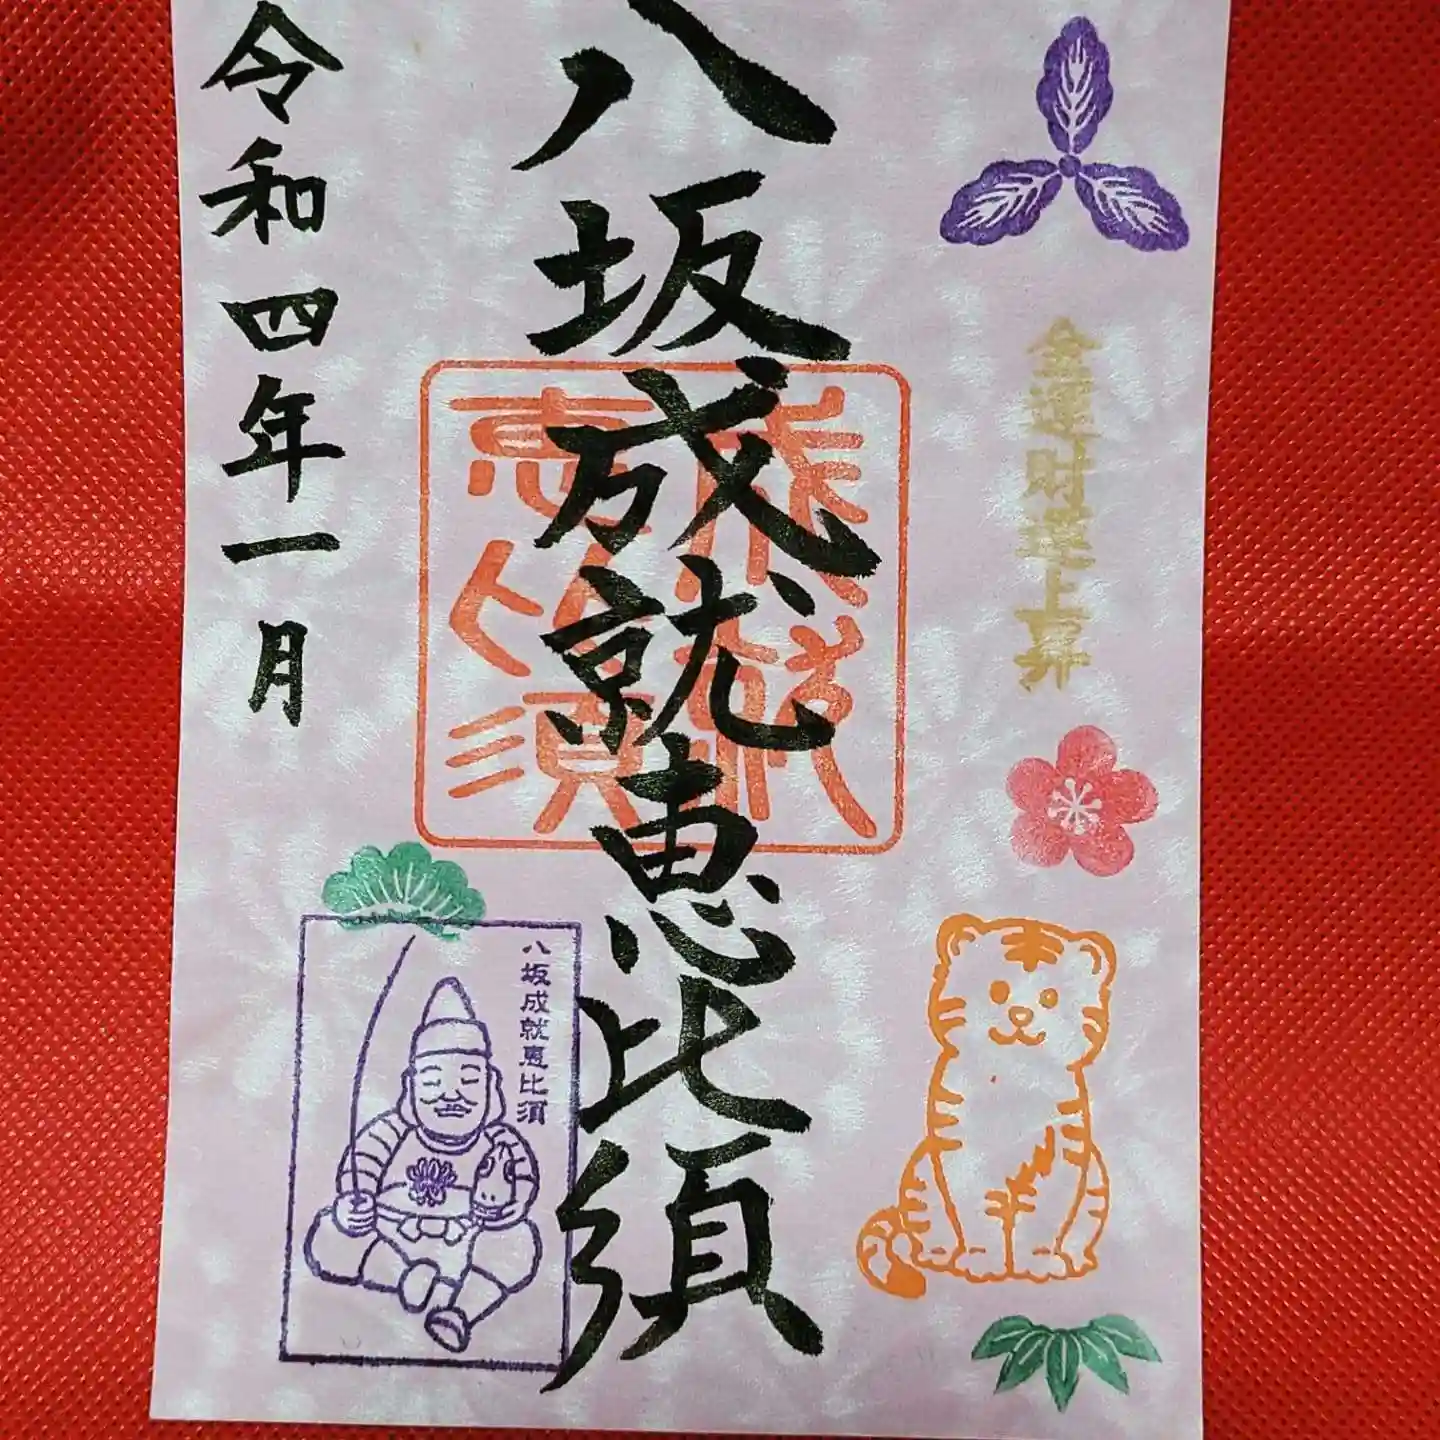 金運財運上昇
八坂成就恵比須
恵比須
八坂成就恵比須
令和四年一月